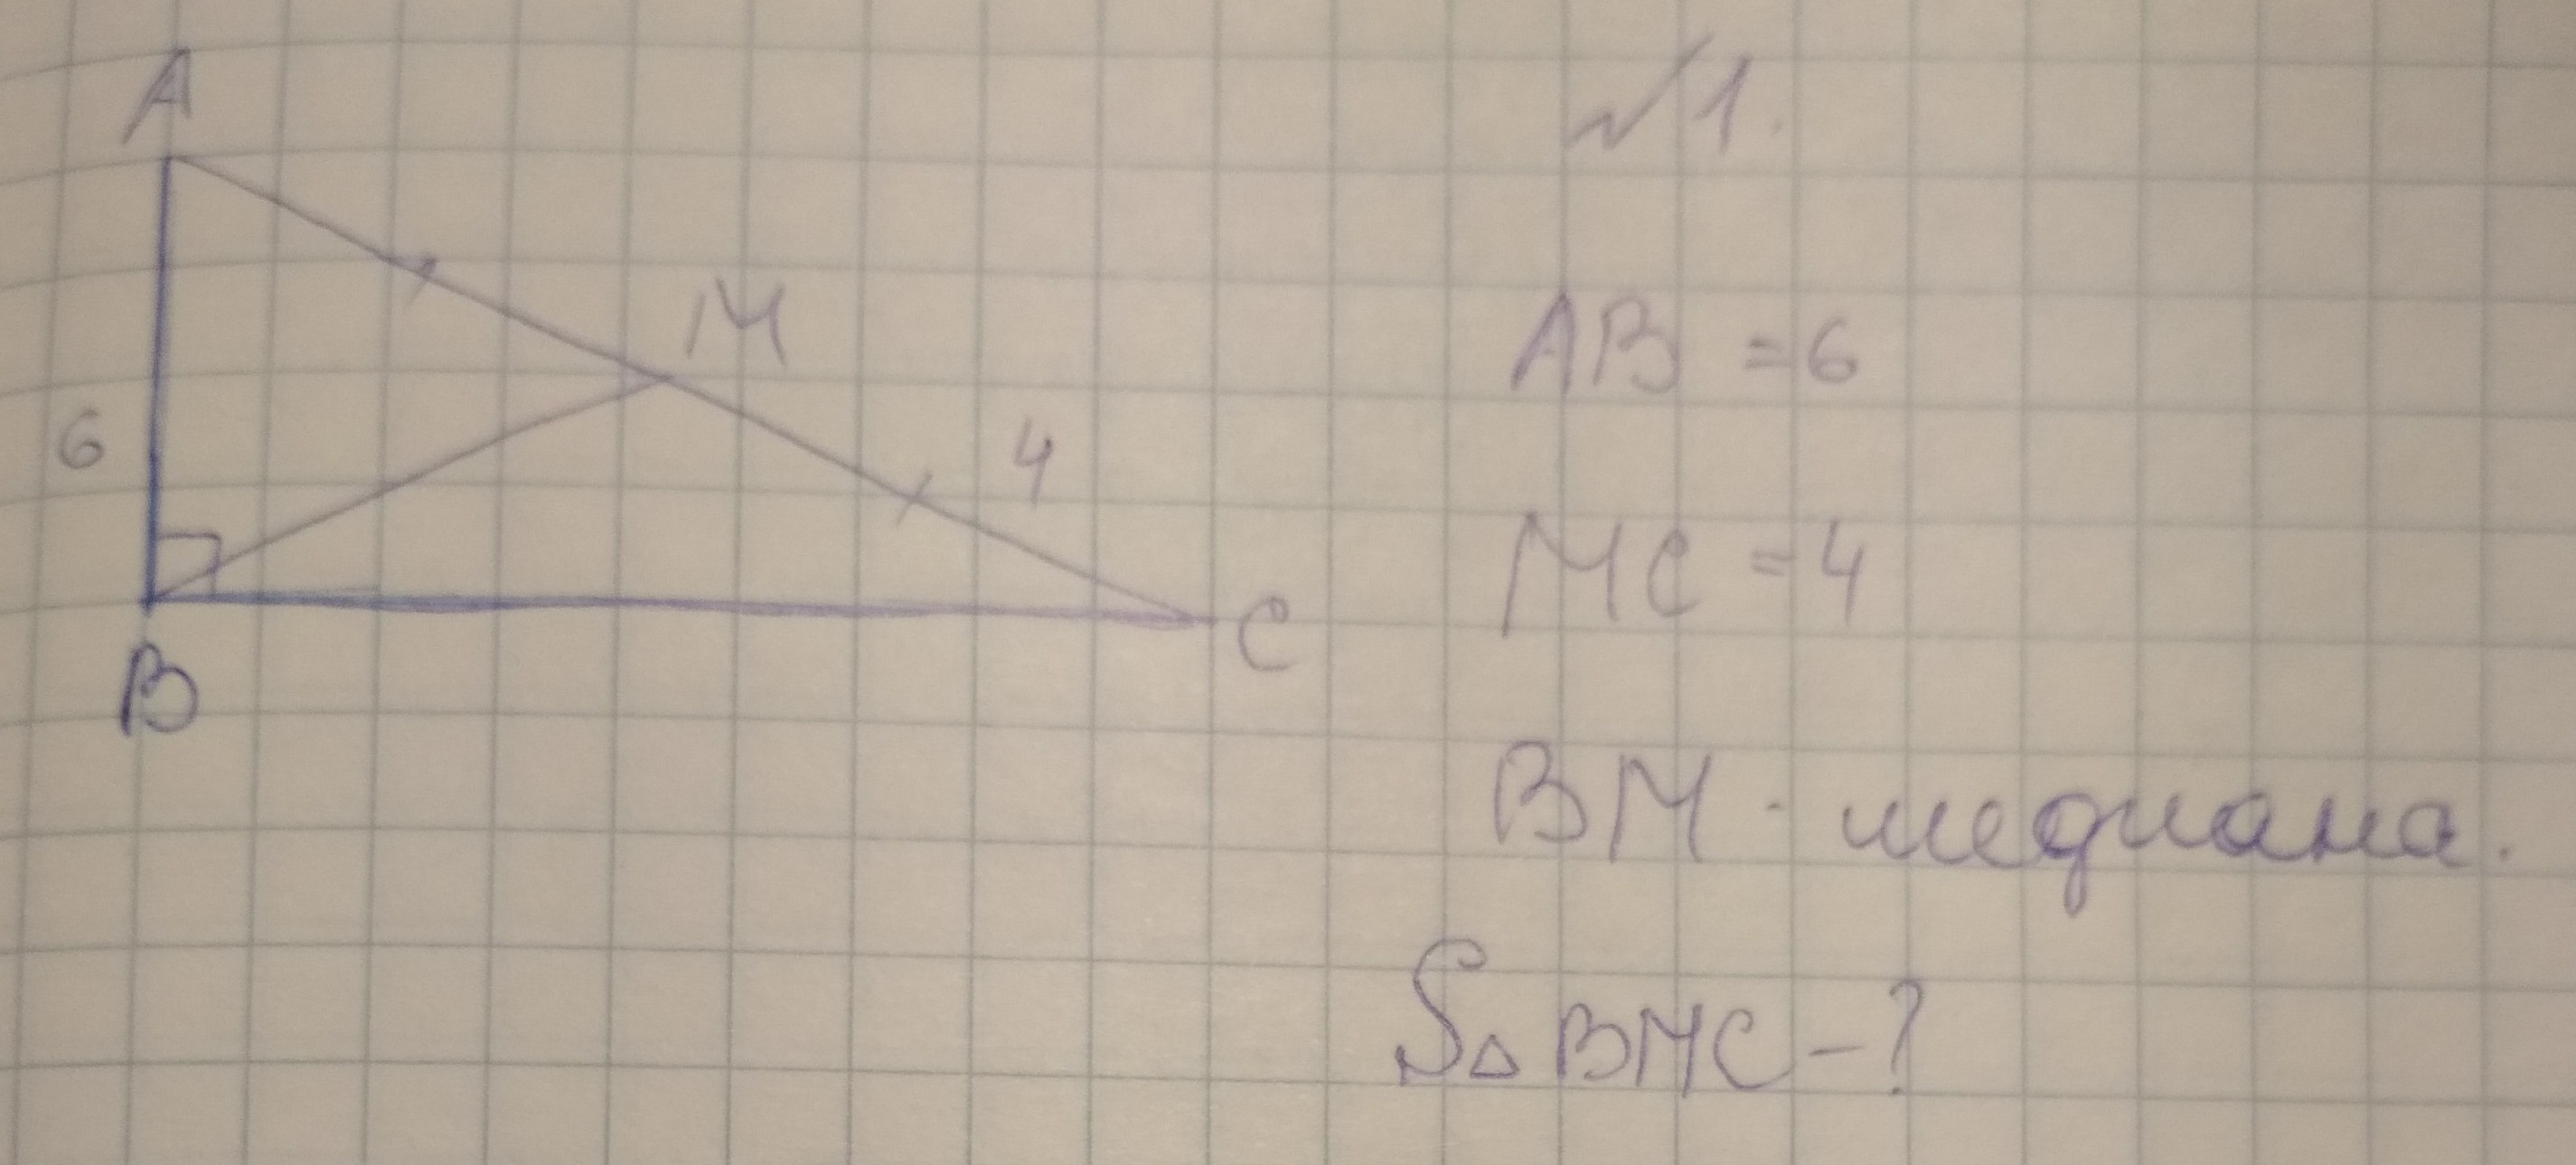 A
№1.
M
AB = 6
6
4
MC = 4
C
B
BM - медиана.
S△BMC - ?